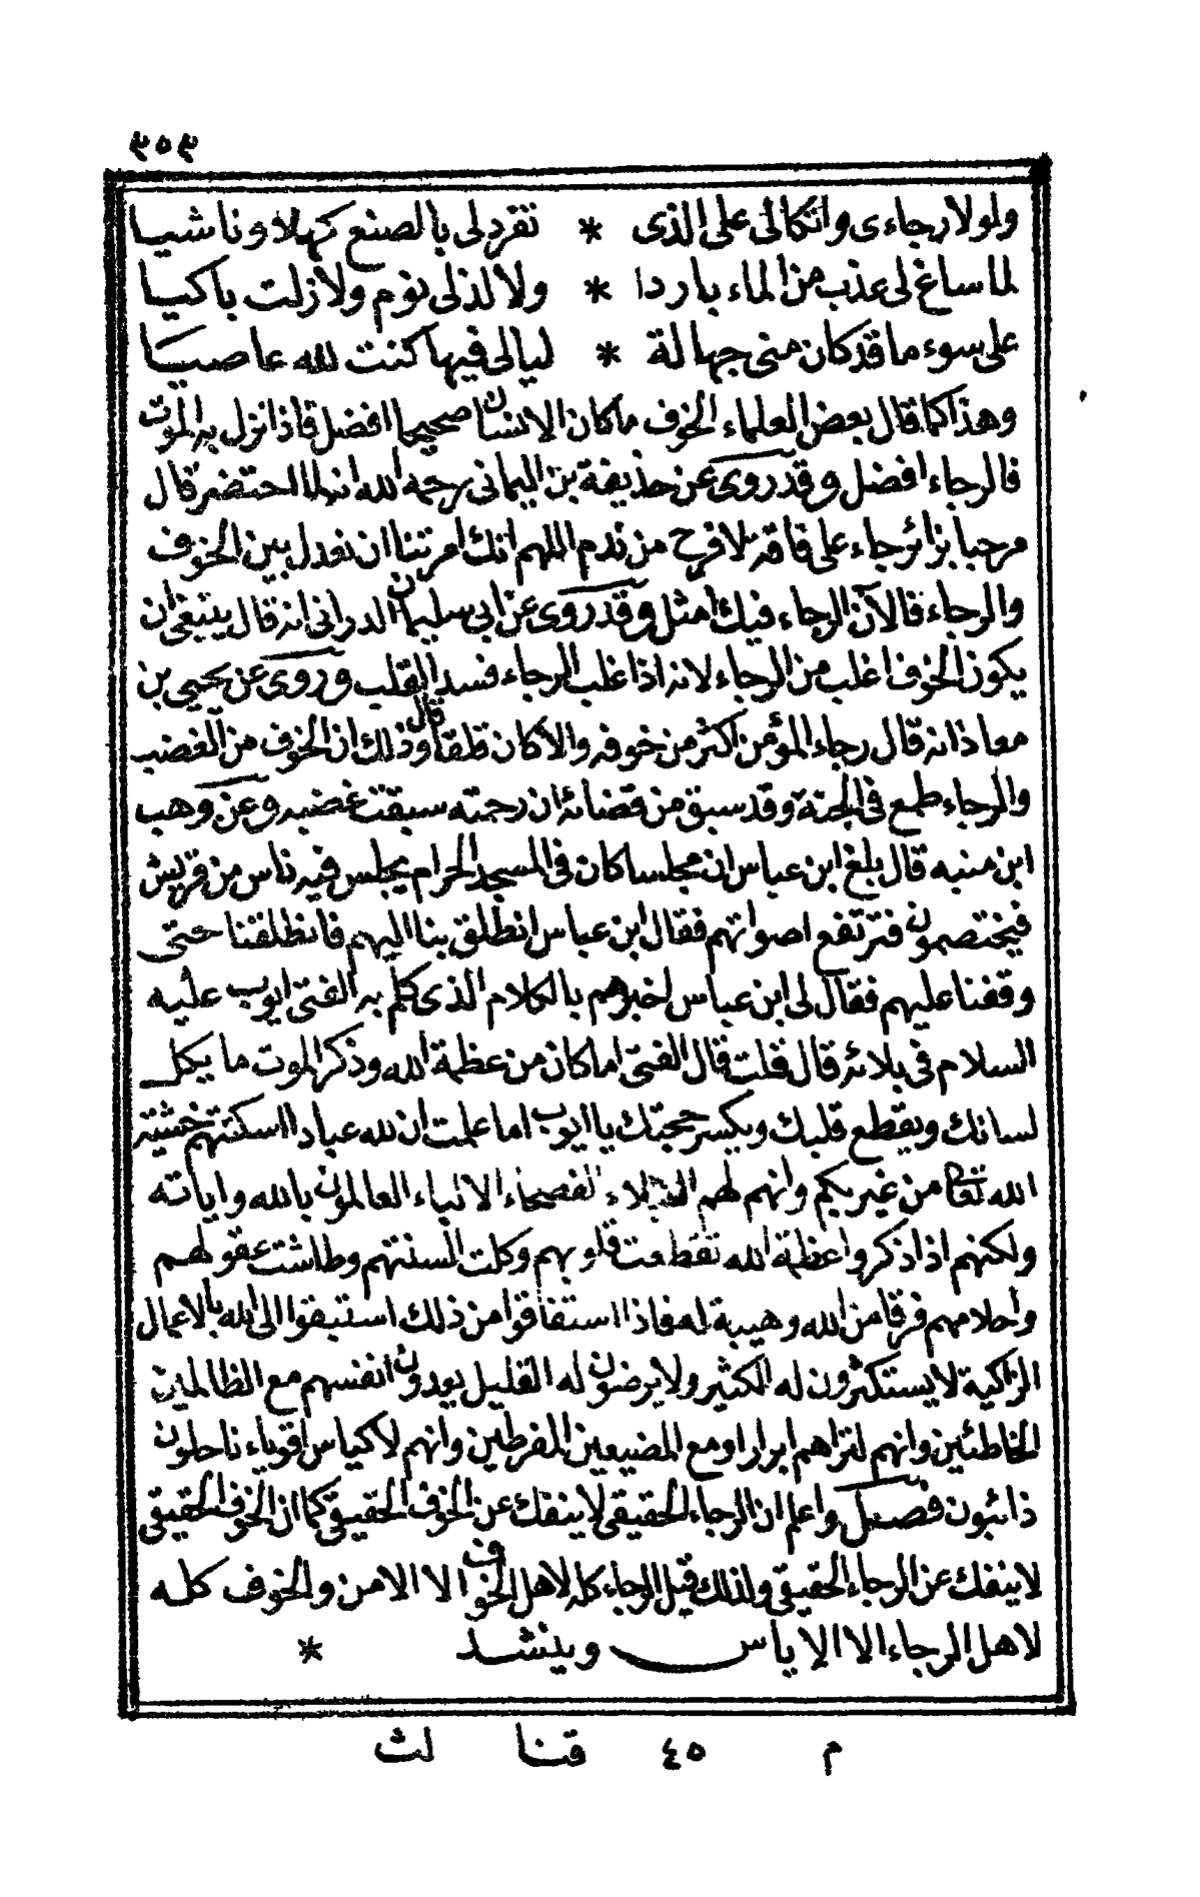 ٣٥٣
ولولا رجاءى واتكالى على الذى * تفرد لى بالصنع كهلا وناشيا
لما ساغ لى عذب من الماء باردا * ولا لذ لى نوم ولا زلت باكيا
على سوء ما قد كان منى جهالة * ليالى فيها كنت لله عاصيا
وهذا كما قال بعض العلماء الخوف ما كان الانسان صحيحا افضل فاذا نزل به الموت
فالرجاء افضل وقد روى عن حذيفة بن اليمانى رحمه الله انه لما احتضر قال
مرحبا بزائر جاء على فاقة لا فرح من ندم اللهم انك امرتنا ان نعدل بين الخوف
والرجاء فالآن الرجاء فيك امثل وقد روى عن ابى سليمان الدرانى انه قال ينبغى ان
يكون الخوف اغلب من الرجاء لانه اذا غلب الرجاء فسد القلب وروى عن يحيى بن
معاذ انه قال رجاء المؤمن اكثر من خوفه والا كان قلقا قال وذلك ان الخوف من الغضب
والرجاء طمع فى الجنة وقد سبق من قضائه ان رحمته سبقت غضبه وعن وهب
ابن منبه قال بلغ ابن عباس ان مجلسا كان فى المسجد الحرام يجلس فيه ناس من قريش
فيختصمون فترتفع اصواتهم فقال ابن عباس انطلق بنا اليهم فانطلقنا حتى
وقفنا عليهم فقال لى ابن عباس اخبرهم بالكلام الذى كلم به الفتى ايوب عليه
السلام فى بلائه قال قلت قال الفتى اما كان من عظمة الله وذكر الموت ما يكل
لسانك ويقطع قلبك ويكسر حجتك يا ايوب اما علمت ان لله عبادا اسكتتهم خشية
الله تعا من غير بكم وانهم لهم النبلاء الفصحاء الانباء العالمون بالله واياته
ولكنهم اذا ذكروا عظمة الله تقطعت قلوبهم وكلت السنتهم وطاشت عقولهم
واحلامهم فرقا من الله وهيبة له فاذا استفاقوا من ذلك استبقوا الى الله بالاعمال
الزاكية لا يستكثرون له الكثير ولا يرضون له القليل يعدون انفسهم مع الظالمين
الخاطئين وانهم لنزاهم ابرارا ومع المضيعين المفرطين وانهم لاكياس اقوياء ناحلون
ذائبون فصل واعلم ان الرجاء الحقيقى لا ينفك عن الخوف الحقيقى كما ان الخوف الحقيقى
لا ينفك عن الرجاء الحقيقى ولذلك قيل الرجاء كله لاهل الخوف الا الامن والخوف كله
لاهل الرجاء الا الاياس وينشد *
م ٤٥ قنا لث